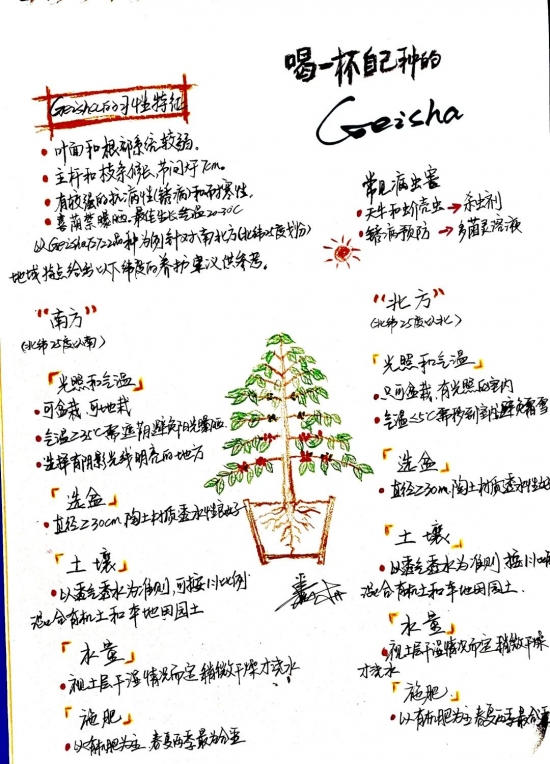 喝一杯自己种的
Geisha
Geisha的习性特征
• 叶面和根部系统较弱。
• 主杆和枝条修长,节间约7cm。
• 有较强的抗病性(锈病)和耐寒性。
• 喜荫禁曝晒,最佳生长气温20-30℃
以Geisha5722品种为例针对南北方(北纬25度划分)
地域特点给出以下纬度的养护建议供参考。
常见病虫害
• 天牛和蚧壳虫 → 杀虫剂
• 锈病预防 → 多菌灵溶液
“南方”
(北纬25度以南)
「光照和气温」
• 可盆栽,可地栽
• 气温≥35℃需遮阴避免阳光曝晒
• 选择有阴影光线明亮的地方
「选盆」
• 直径≥30cm,陶土材质透水性良好
「土壤」
• 以透气透水为准则,可按1:1比例
混合有机土和本地田园土
「水量」
• 视土层干湿情况而定 稍微干燥才浇水
「施肥」
• 以有机肥为主 春夏两季最为合适
“北方”
(北纬25度以北)
「光照和气温」
• 只可盆栽,有光照的室内
• 气温≤5℃需移到室内避免霜雪
「选盆」
• 直径≥30cm,陶土材质透水性
「土壤」
• 以透气透水为准则 按1:1
混合有机土和本地田园土
「水量」
• 视土层干湿情况而定 稍微干燥
才浇水
「施肥」
• 以有机肥为主 春夏两季最合适